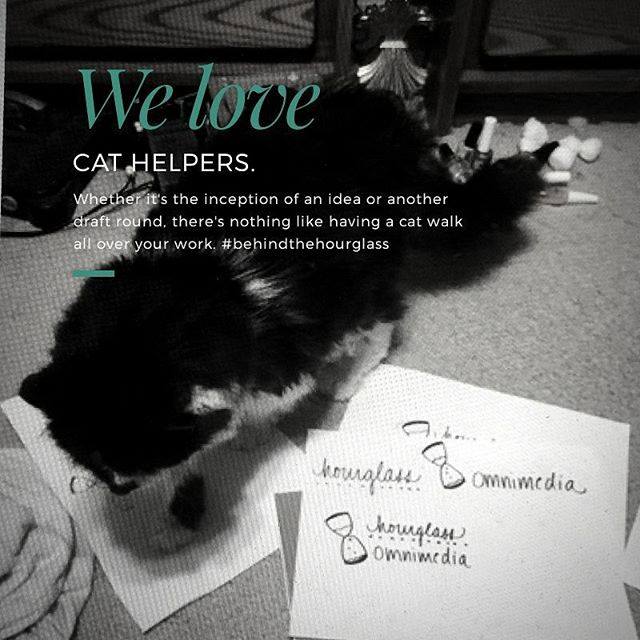 We love
CAT HELPERS.
Whether it's the inception of an idea or another
draft round, there's nothing like having a cat walk
all over your work. #behindthehourglass
hourglass omnimedia
hourglass
omnimedia